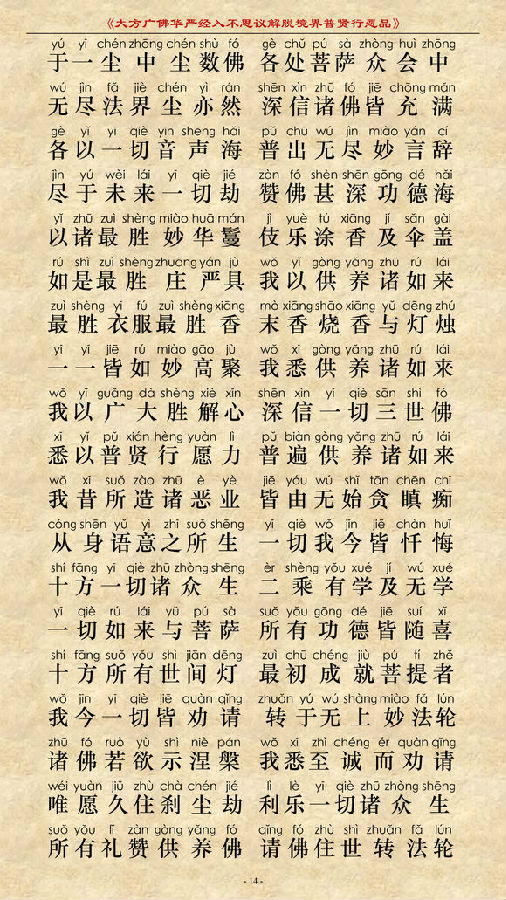 《大方广佛华严经入不思议解脱境界普贤行愿品》
yú yī chén zhōng chén shù fó gè chù pú sà zhòng huì zhōng
于一尘中尘数佛 各处菩萨众会中
wú jìn fǎ jiè chén yì rán shēn xìn zhū fó jiē chōng mǎn
无尽法界尘亦然 深信诸佛皆充满
gè yǐ yī qiè yīn shēng hǎi pǔ chū wú jìn miào yán cí
各以一切音声海 普出无尽妙言辞
jìn yú wèi lái yī qiè jié zàn fó shèn shēn gōng dé hǎi
尽于未来一切劫 赞佛甚深功德海
yǐ zhū zuì shèng miào huā mán jì yuè tú xiāng jí sǎn gài
以诸最胜妙华鬘 伎乐涂香及伞盖
rú shì zuì shèng zhuāng yán jù wǒ yǐ gòng yǎng zhū rú lái
如是最胜庄严具 我以供养诸如来
zuì shèng yī fú zuì shèng xiāng mò xiāng shāo xiāng yǔ dēng zhú
最胜衣服最胜香 末香烧香与灯烛
yī yī jiē rú miào gāo jù wǒ xī gòng yǎng zhū rú lái
一一皆如妙高聚 我悉供养诸如来
wǒ yǐ guǎng dà shèng xiè xīn shēn xìn yī qiè sān shì fó
我以广大胜解心 深信一切三世佛
xī yǐ pǔ xián hèng yuàn lì pǔ biàn gòng yǎng zhū rú lái
悉以普贤行愿力 普遍供养诸如来
wǒ xī suǒ zào zhū è yè jiē yóu wú shǐ tān chēn chī
我昔所造诸恶业 皆由无始贪瞋痴
cóng shēn yǔ yì zhī suǒ shēng yī qiè wǒ jīn jiē chàn huǐ
从身语意之所生 一切我今皆忏悔
shí fāng yī qiè zhū zhòng shēng èr shèng yǒu xué jí wú xué
十方一切诸众生 二乘有学及无学
yī qiè rú lái yǔ pú sà suǒ yǒu gōng dé jiē suí xǐ
一切如来与菩萨 所有功德皆随喜
shí fāng suǒ yǒu shì jiān dēng zuì chū chéng jiù pú tí zhě
十方所有世间灯 最初成就菩提者
wǒ jīn yī qiè jiē quàn qǐng zhuǎn yú wú shàng miào fǎ lún
我今一切皆劝请 转于无上妙法轮
zhū fó ruò yù shì niè pán wǒ xī zhì chéng ér quàn qǐng
诸佛若欲示涅槃 我悉至诚而劝请
wéi yuàn jiǔ zhù chà chén jié lì lè yī qiè zhū zhòng shēng
唯愿久住刹尘劫 利乐一切诸众生
suǒ yǒu lǐ zàn gòng yǎng fó qǐng fó zhù shì zhuǎn fǎ lún
所有礼赞供养佛 请佛住世转法轮
- 14 -